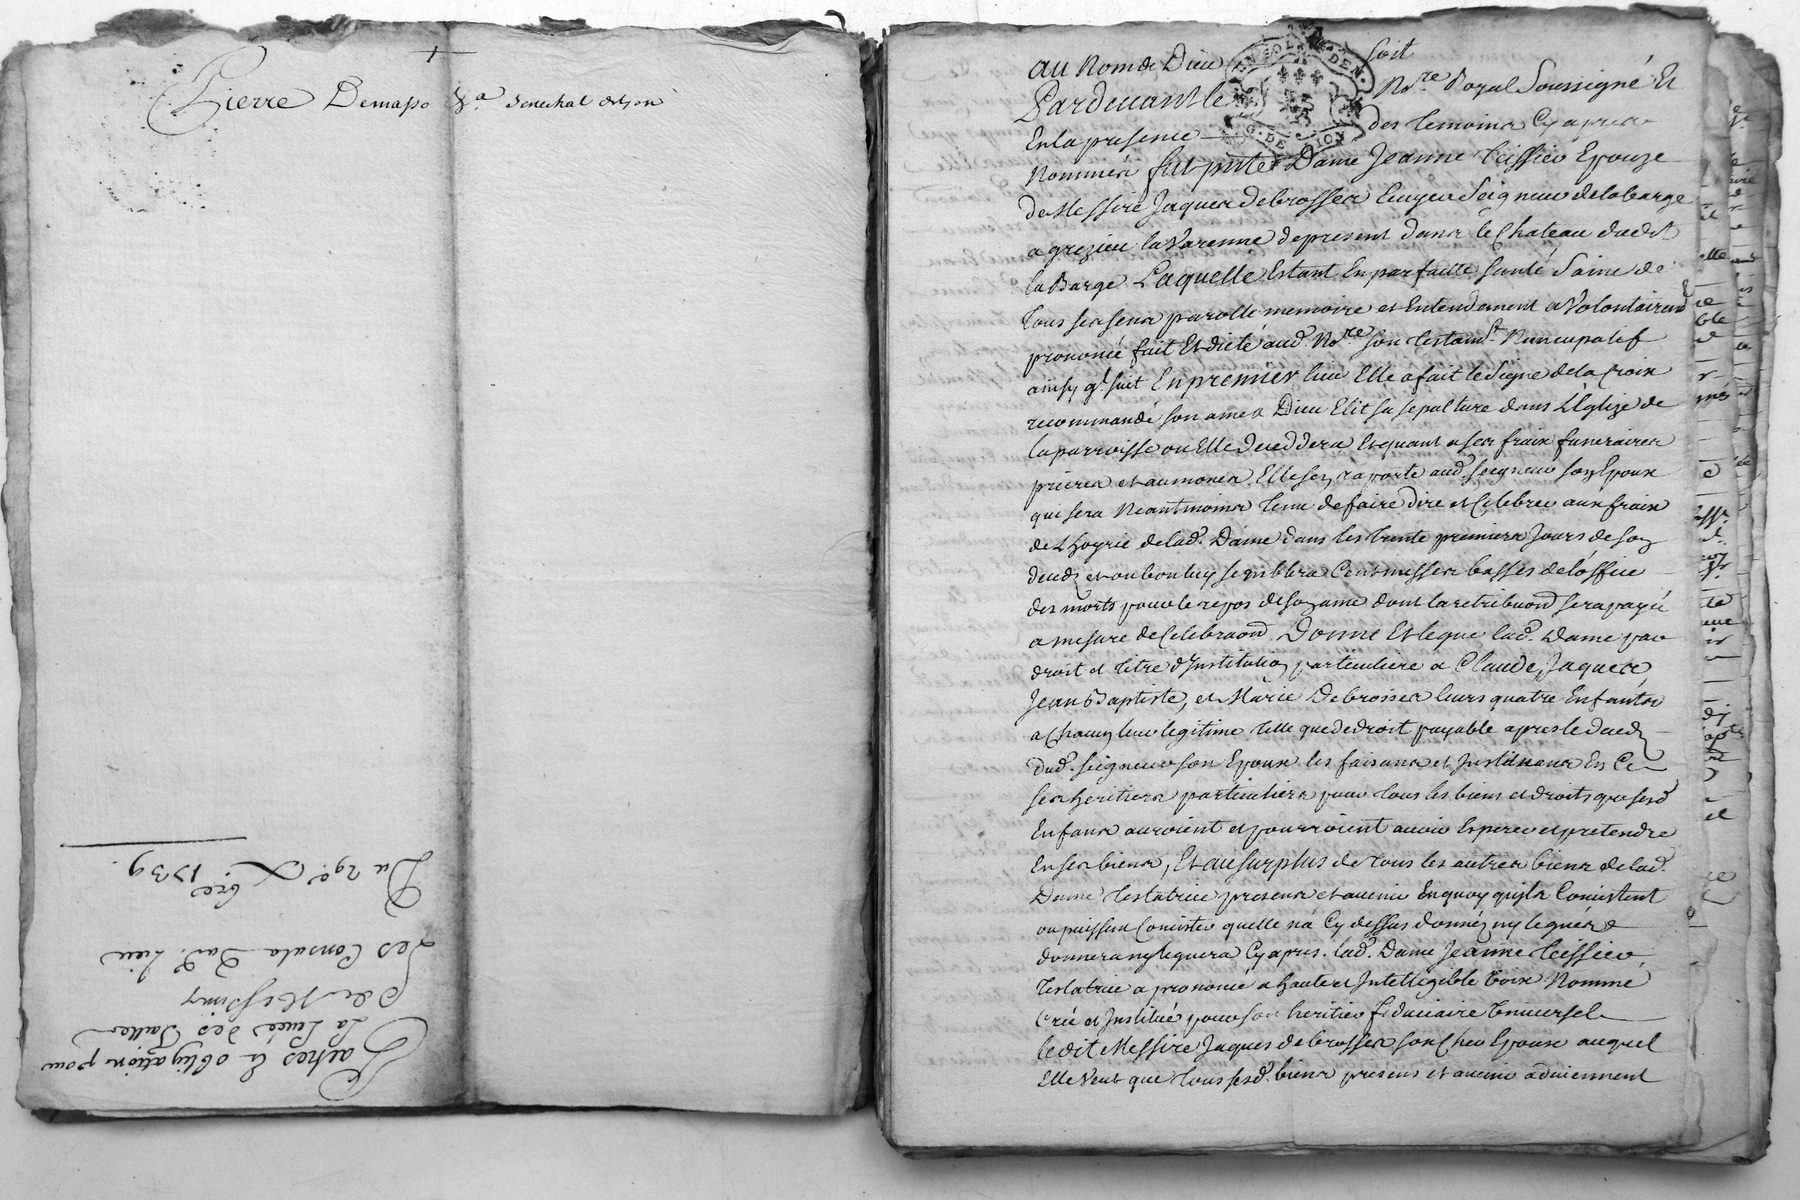 Pierre Demaso
senechal
Du 29e Xbre 1739.
Les Consuls Dud. Lieu
de Messimy
La Levée des Tailles
Pactes & obligation pour
Au Nom de Dieu soit
Pardevant le Nore Royal Soussigné Et
En la presence des temoins Cy apres
Nommés fut pnte Dame Jeanne Teissier Epouze
de Messire Jaques Debrosses Ecuyer Seigneur de la barge
a grezieu la Varenne de present dans le Chateau dudit
la Barge Laquelle Estant En parfaitte santé Saine de
tous ses sens parolle memoire et Entendement a Volontairemt
prononcé fait Et dicté aud. Nore son testamt Nuncupatif
ainsy q. suit En premier lieu Elle a fait le signe de la Croix
recommandé son ame a Dieu Elit sa sepulture dans L'Eglize de
la parroisse ou Elle deceddera Et quant a ses fraix funeraires
prieres et aumones Elle s'en raporte aud. seigneur son Epoux
qui sera Neantmoins tenu de faire dire et Celebrer aux fraix
de L'hoyrie de lad. Dame dans les trente premiers Jours de son
deceds et ou bon luy semblera Cent messes basses de l'office
des morts pour le repos de son ame dont la retribuon sera payée
a mesure de Celebraon Donne Et legue lad. Dame par
droit et titre d'Institution particuliere a Claude, Jaques
Jean Baptiste, et Marie Debrosses leurs quatre Enfants
a Chacun leur legitime telle que de droit payable apres le deceds
dud. seigneur son Epoux les faisant et Instituant En Ce
ses heritiers particuliers pour tous les biens et droits que sesd.
Enfans auroient et pourroient avoir Esperer et pretendre
En ses biens, Et au surplus de tous les autres biens de lad.
Dame testatrice presens et avenir En quoy qu'ils Consistent
ou puissent Consister quelle n'a Cy dessus donnéz ny leguéz &
donnera ny leguera Cy apres. lad. Dame Jeanne Teissier
testatrice a prononcé a haute et Intelligible voix Nommé
Créé et Institué pour son heritier fiduciaire Universel
ledit Messire Jaques debrosses son Cher Epoux auquel
Elle Veut que tous sesd. biens presens et avenir adviennent